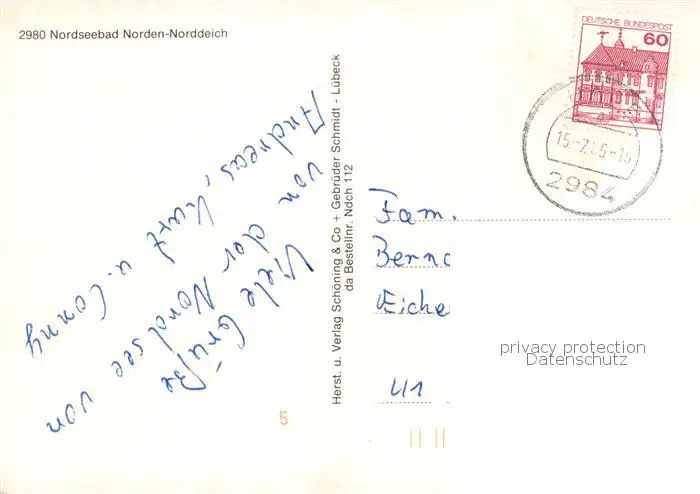 2980 Nordseebad Norden-Norddeich
DEUTSCHE BUNDESPOST
60
2984
Viele Grüße
von der Nordsee von
Andreas, Kurt u. Conny
Herst. u. Verlag Schöning & Co + Gebrüder Schmidt - Lübeck
da Bestellnr. Ndch 112
Fam.
Bernd
Eiche
41
privacy protection
Datenschutz
5